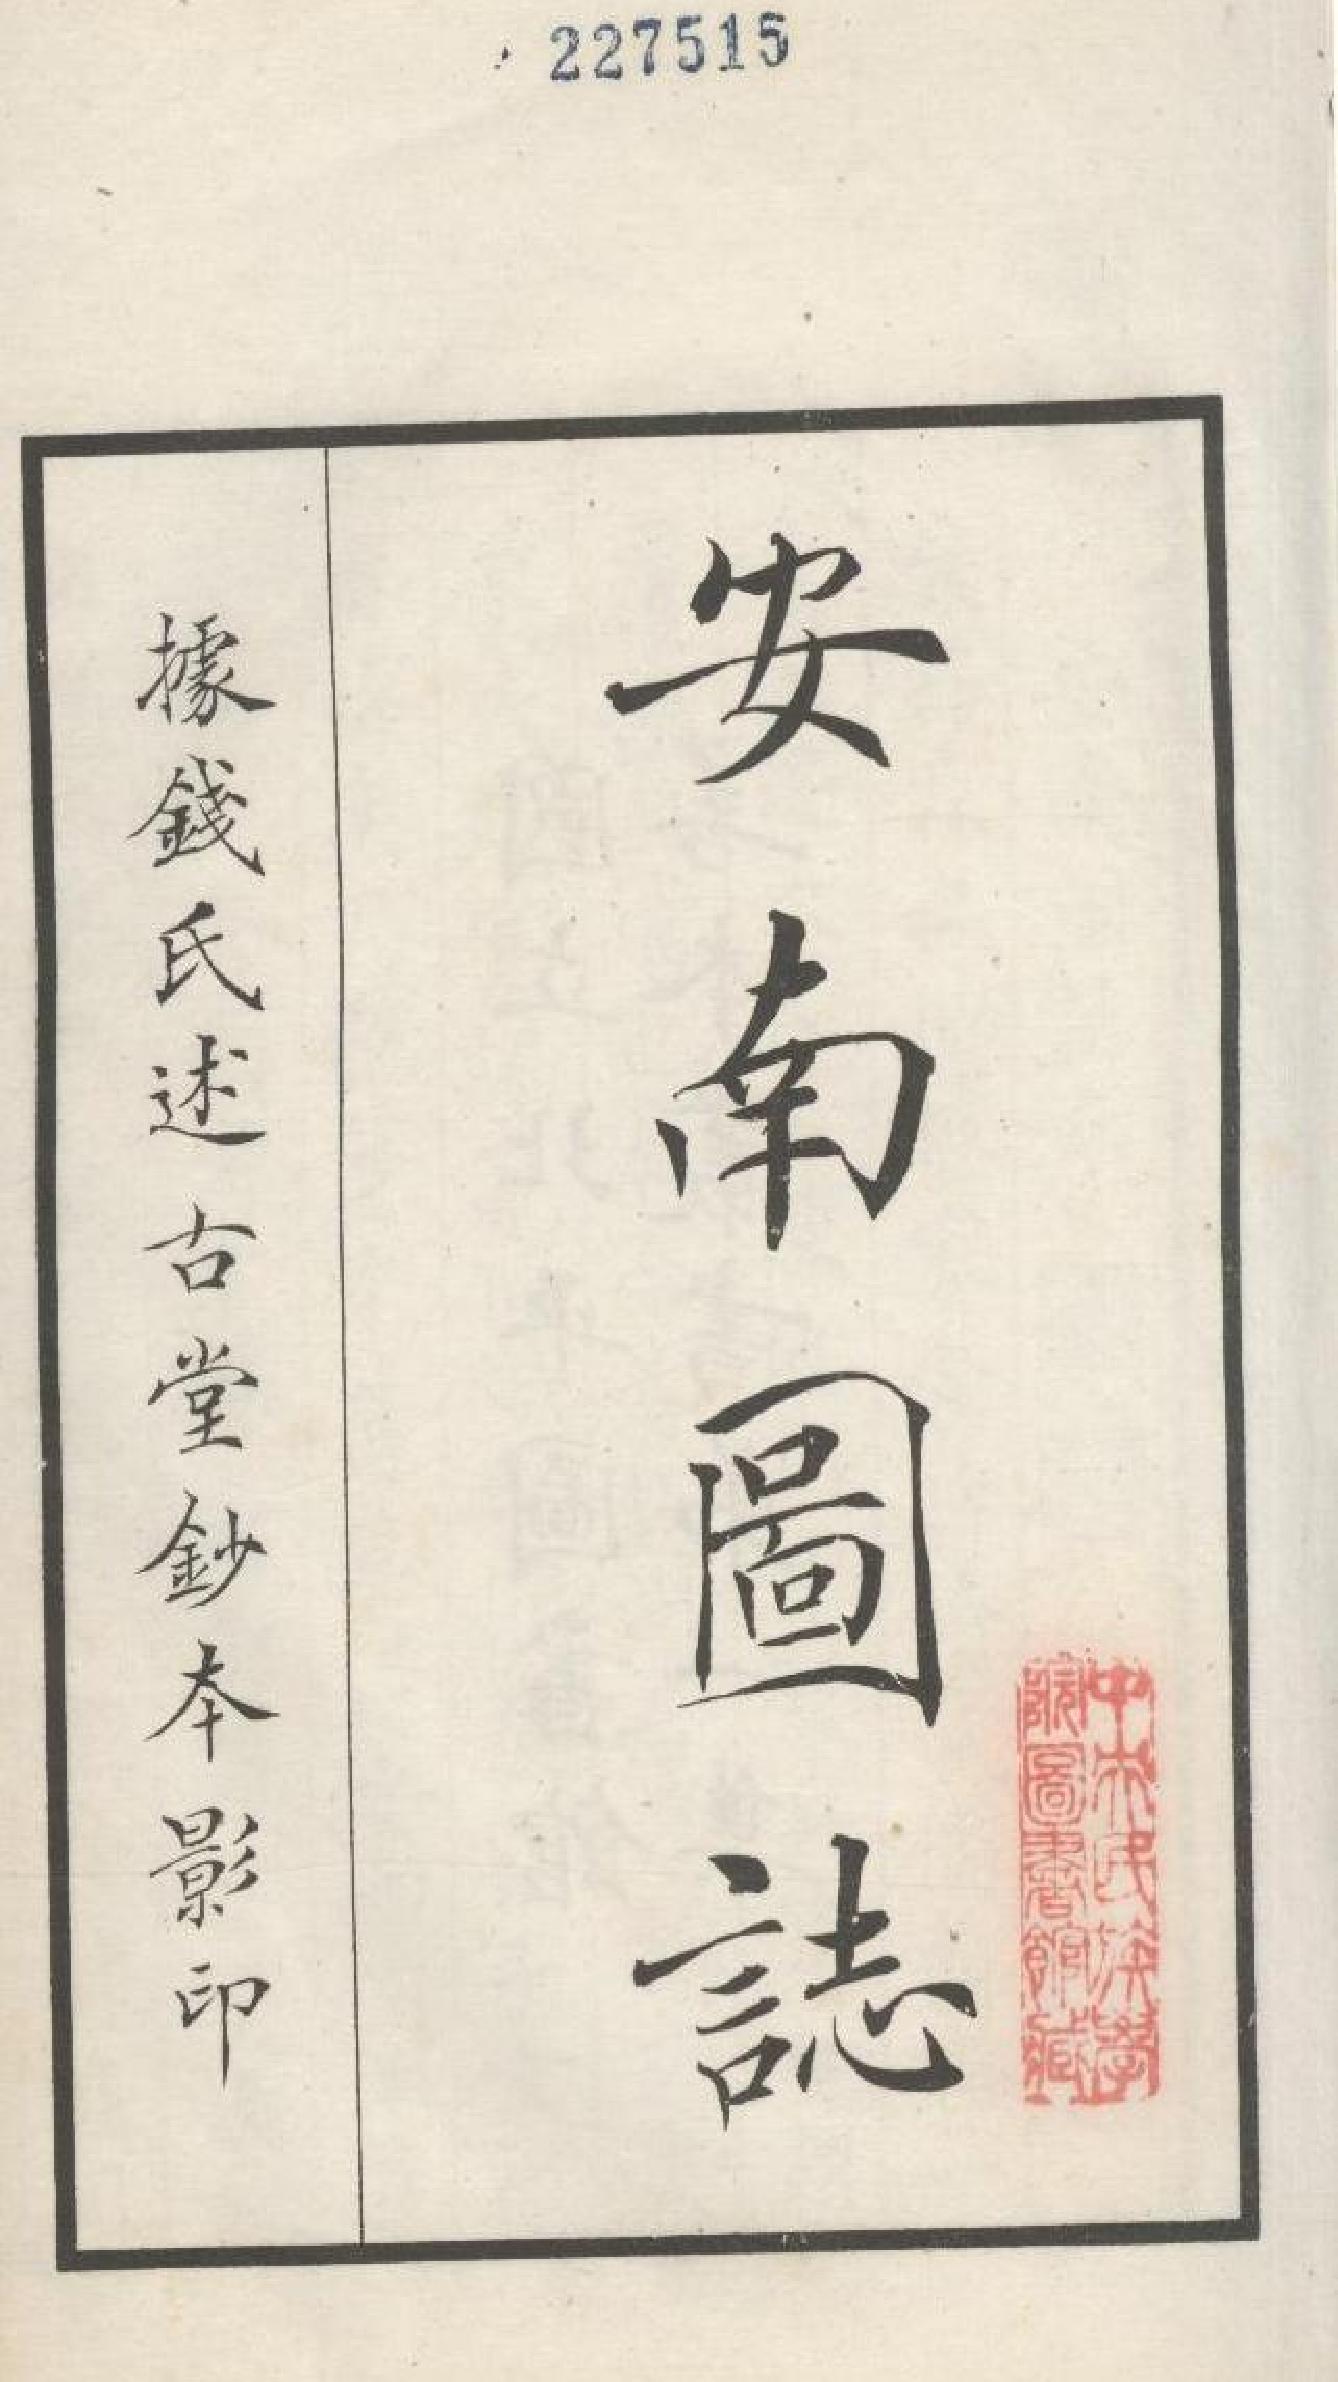 227515
安南圖誌
據錢氏述古堂鈔本影印
中央民族學
院圖書館藏